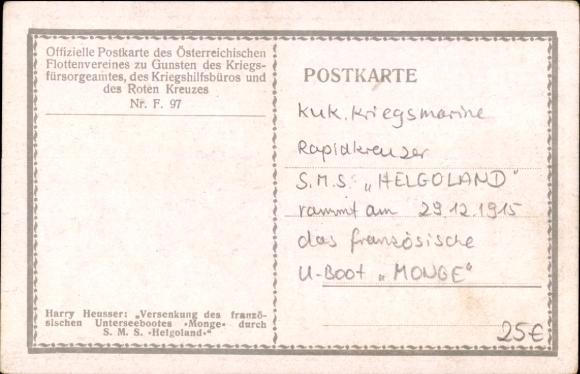 Offizielle Postkarte des Österreichischen
Flottenvereines zu Gunsten des Kriegs-
fürsorgeamtes, des Kriegshilfsbüros und
des Roten Kreuzes
Nr. F. 97
POSTKARTE
KuK. Kriegsmarine
Rapidkreuzer
S.M.S. „HELGOLAND"
rammt am 29.12.1915
das französische
U-Boot „MONGE"
Harry Heusser: „Versenkung des franzö-
sischen Unterseebootes »Monge« durch
S. M. S. »Helgoland«"
25€